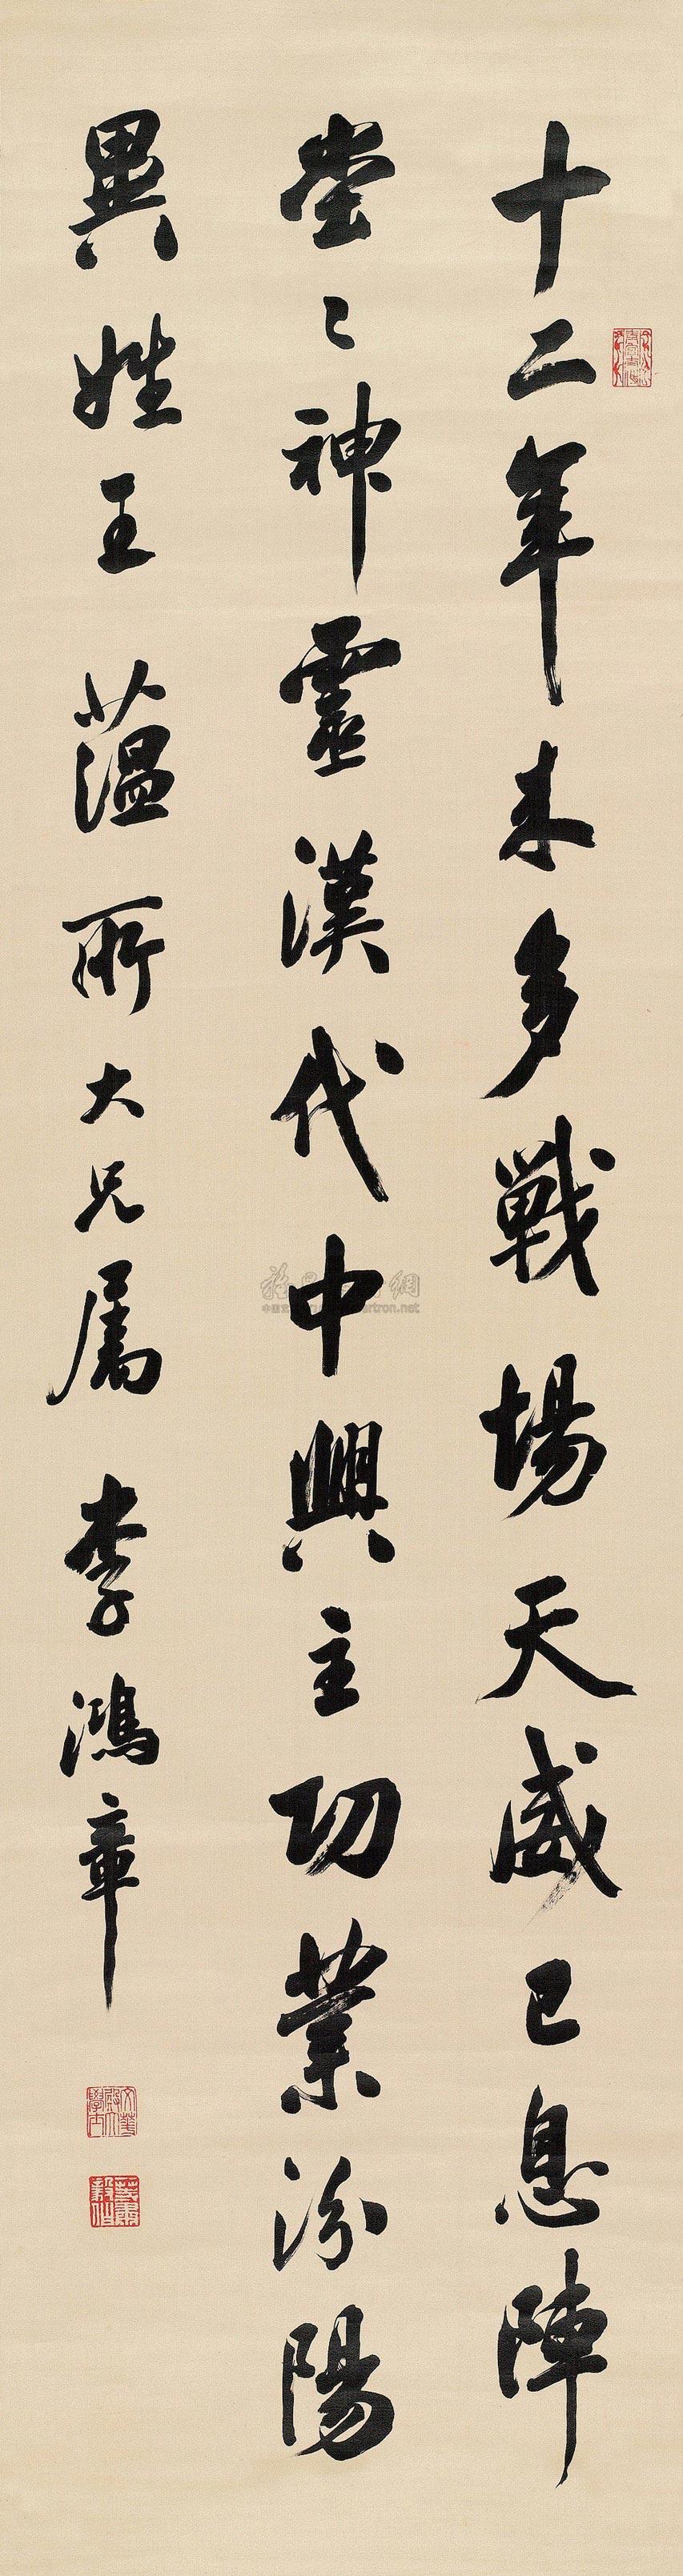 十二年來多戰場天威已息陣
堂〻神靈漢代中興主功業汾陽
異姓王 蕰所大兄屬 李鴻章
文華殿大學士
肅毅伯